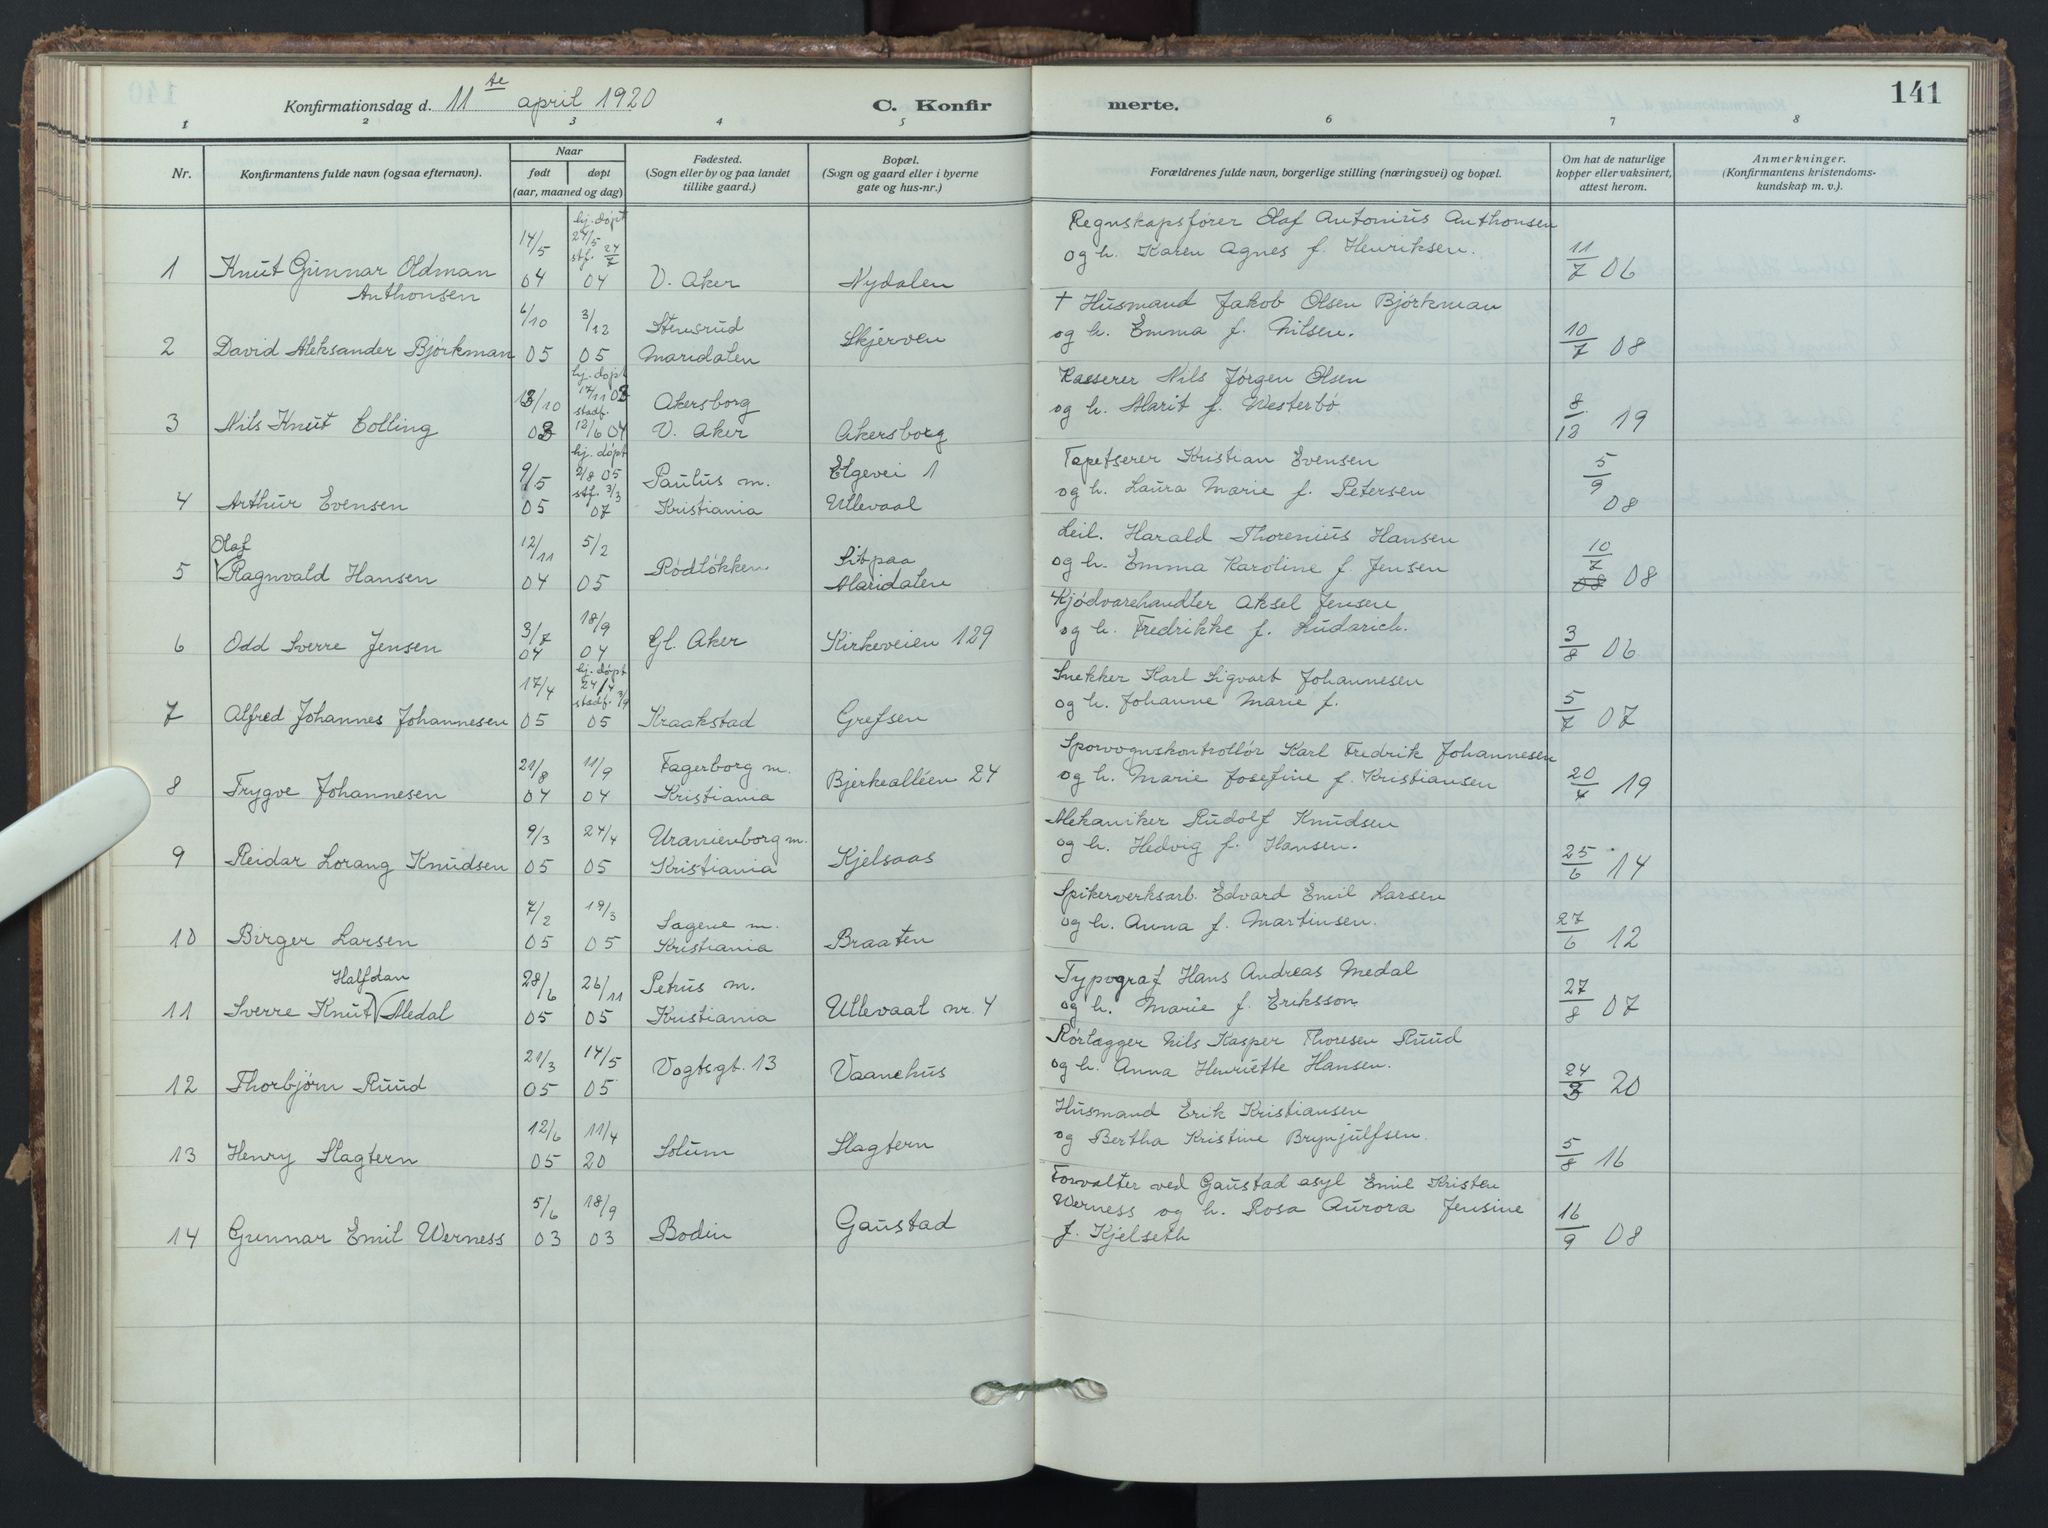 141
Konfirmationsdag d. 11te april 1920
C. Konfir merte.
1 2 3 4 5 6 7 8
Nr.
Konfirmantens fulde navn (ogsaa efternavn).
Naar
født døpt
(aar, maaned og dag)
Fødested.
(Sogn eller by og paa landet
tillike gaard.)
Bopæl.
(Sogn og gaard eller i byerne
gate og hus-nr.)
Forældrenes fulde navn, borgerlige stilling (næringsvei) og bopæl.
Om hat de naturlige
kopper eller vaksinert,
attest herom.
Anmerkninger.
(Konfirmantens kristendoms-
kundskap m. v.)
hj. døpt
14/5 24/5 stf. 24/7
Regnskapsfører Olaf Antonius Anthonsen
og h. Karen Agnes f. Henriksen. 11/7 06
1 Knut Gunnar Oldman 04 04 V. Aker Nydalen
Anthonsen
6/10 3/12 Stensrud Skjerven
2 David Aleksander Bjørkman 05 05 Maridalen
† Husmand Jakob Olsen Bjørkman
og h. Emma f. Nilsen. 10/7 08
hj. døpt
13/10 17/11 03 stadf. Akersborg
3 Nils Knut Colling 03 12/6 04 V. Aker Akersborg
Kasserer Nils Jørgen Olsen
og h. Marit f. Westerbø 8/12 19
hj. døpt
9/5 2/8 05 stf. 3/3 Paulus m. Elgevei 1
4 Arthur Evensen 05 07 Kristiania Ullevaal
Tapetserer Kristian Evensen
og h. Laura Marie f. Petersen 5/9 08
Olaf 12/11 5/2 Sitpaa
5 Ragnvald Hansen 04 05 Rødløkken. Maridalen
Leil. Harald Thorenius Hansen
og h. Emma Karoline f. Jensen 10/7 08 08
3/7 18/9
6 Odd Sverre Jensen 04 04 Gl. Aker Kirkeveien 129
Kjødvarehandler Aksel Jensen
og h. Fredrikke f. Ludarich. 3/8 06
hj. døpt
17/4 24/4 stadf. 3/9
7 Alfred Johannes Johannesen 05 05 Kraakstad Grefsen
Snekker Karl Sigvart Johannesen
og h. Johanne Marie f. 5/7 07
21/8 11/9 Fagerborg m. Bjerkealléen 24
8 Trygve Johannesen 04 04 Kristiania
Sporvognskontrollør Karl Fredrik Johannesen
og h. Marie Josefine f. Kristiansen 20/4 19
9/3 24/4 Uranienborg m.
9 Reidar Lorang Knudsen 05 05 Kristiania Kjelsaas
Mekaniker Rudolf Knudsen
og h. Hedvig f. Hansen. 25/6 14
7/2 19/3 Sagene m.
10 Birger Larsen 05 05 Kristiania Braaten
Spikerverksarb. Edvard Emil Larsen
og h. Anna f. Martinsen. 27/6 12
Halfdan 28/6 26/11 Petrus m.
11 Sverre Knut Medal 05 05 Kristiania Ullevaal nr. 4
Typograf Hans Andreas Medal
og h. Marie f. Eriksson 27/8 07
21/3 14/5 Vogtsgt. 13 Vaanehus
12 Thorbjørn Ruud 05 05
Rørlægger Nils Kasper Thoresen Ruud
og h. Anna Henriette Hansen. 24/3 20
12/6 11/4
13 Henry Slagtern 05 20 Solum Slagtern
Husmand Erik Kristiansen
og Bertha Kristine Brynjulfsen. 5/8 16
5/6 18/9
14 Gunnar Emil Werness 03 03 Bodin Gaustad
Forvalter ved Gaustad asyl Emil Kristen
Werness og h. Rosa Aurora Jensine
f. Kjelseth 16/9 08